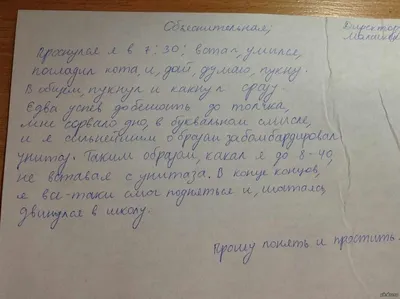 Объяснительная,
Директор
Проснулся я в 7:30; встал, умылся,
погладил кота и, дай, думаю, пукну.
В общем, пукнул и какнул сразу.
Едва успев добежать до толчка,
мне сорвало дно, в буквальном смысле,
и я сильнейшим образом забомбардировал
унитаз. Таким образом, какал я до 8-40,
не вставая с унитаза. В конце концов,
я все-таки смог подняться и, шатаясь,
двинулся в школу.
Прошу понять и простить.